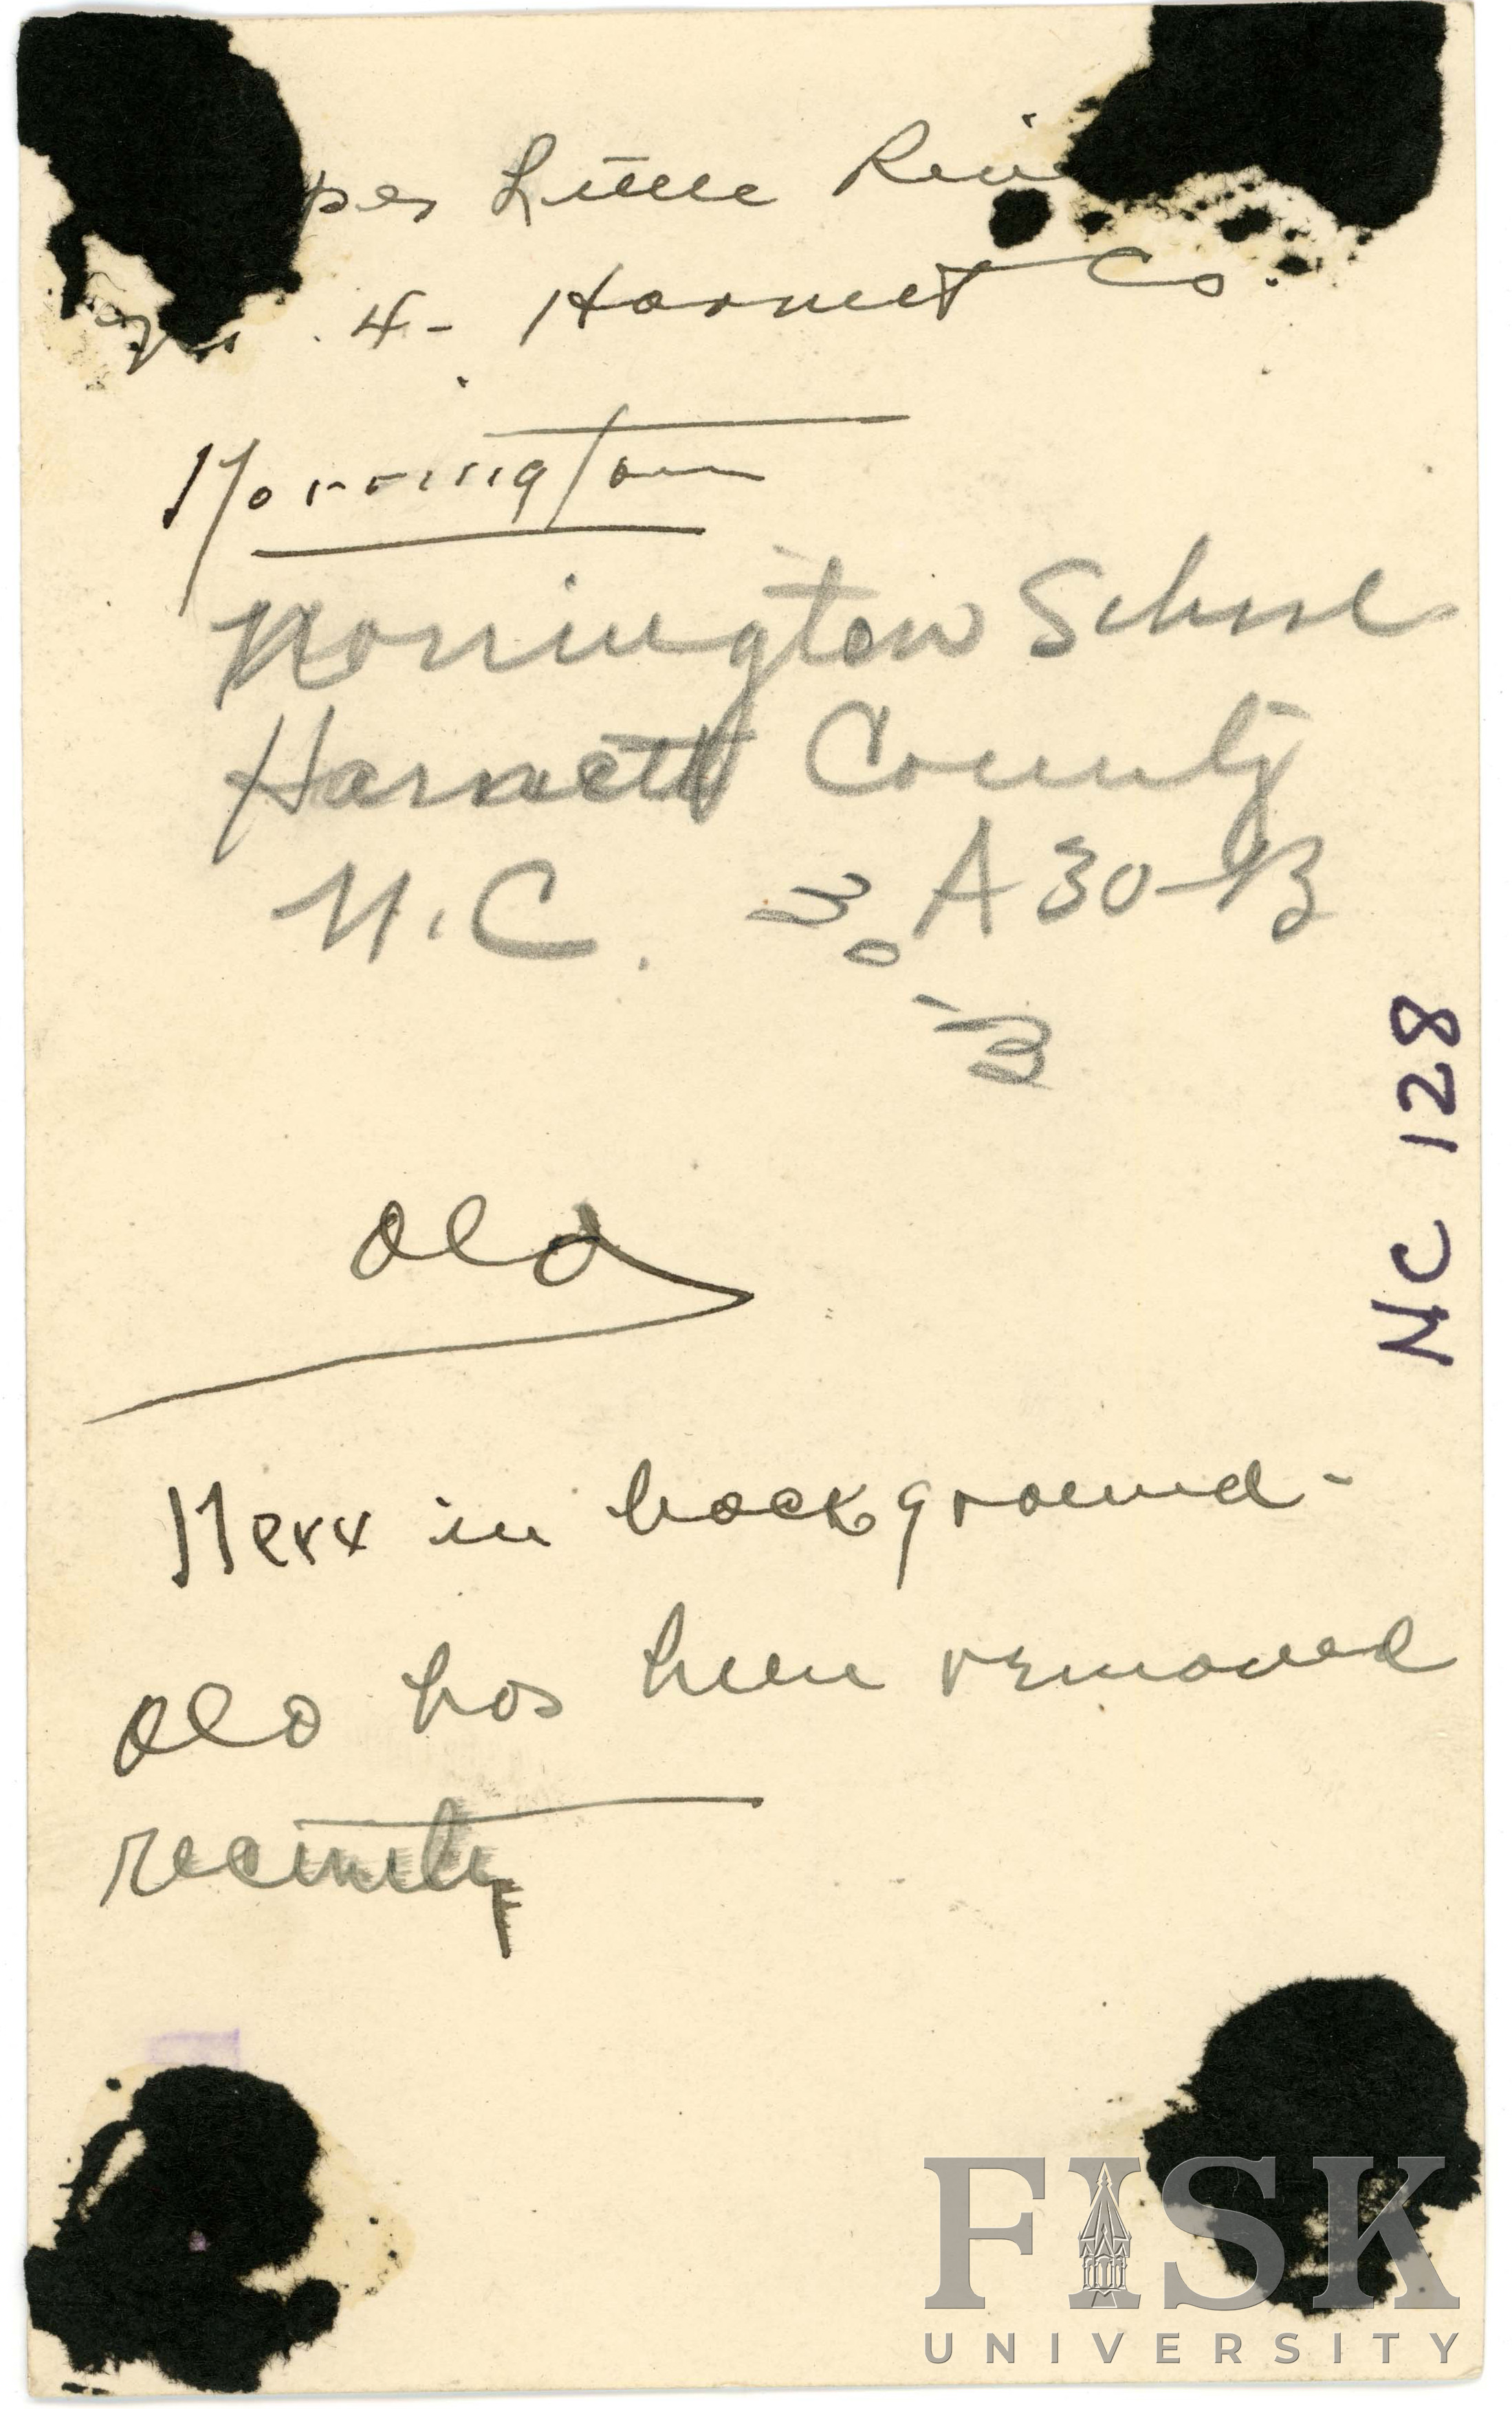 Little
4- Harnett Co.
Norrington
Norrington School
Harnett County
N.C. A 30-B
NC 128
Old
New in background -
Old has been removed
recently
FISK
UNIVERSITY